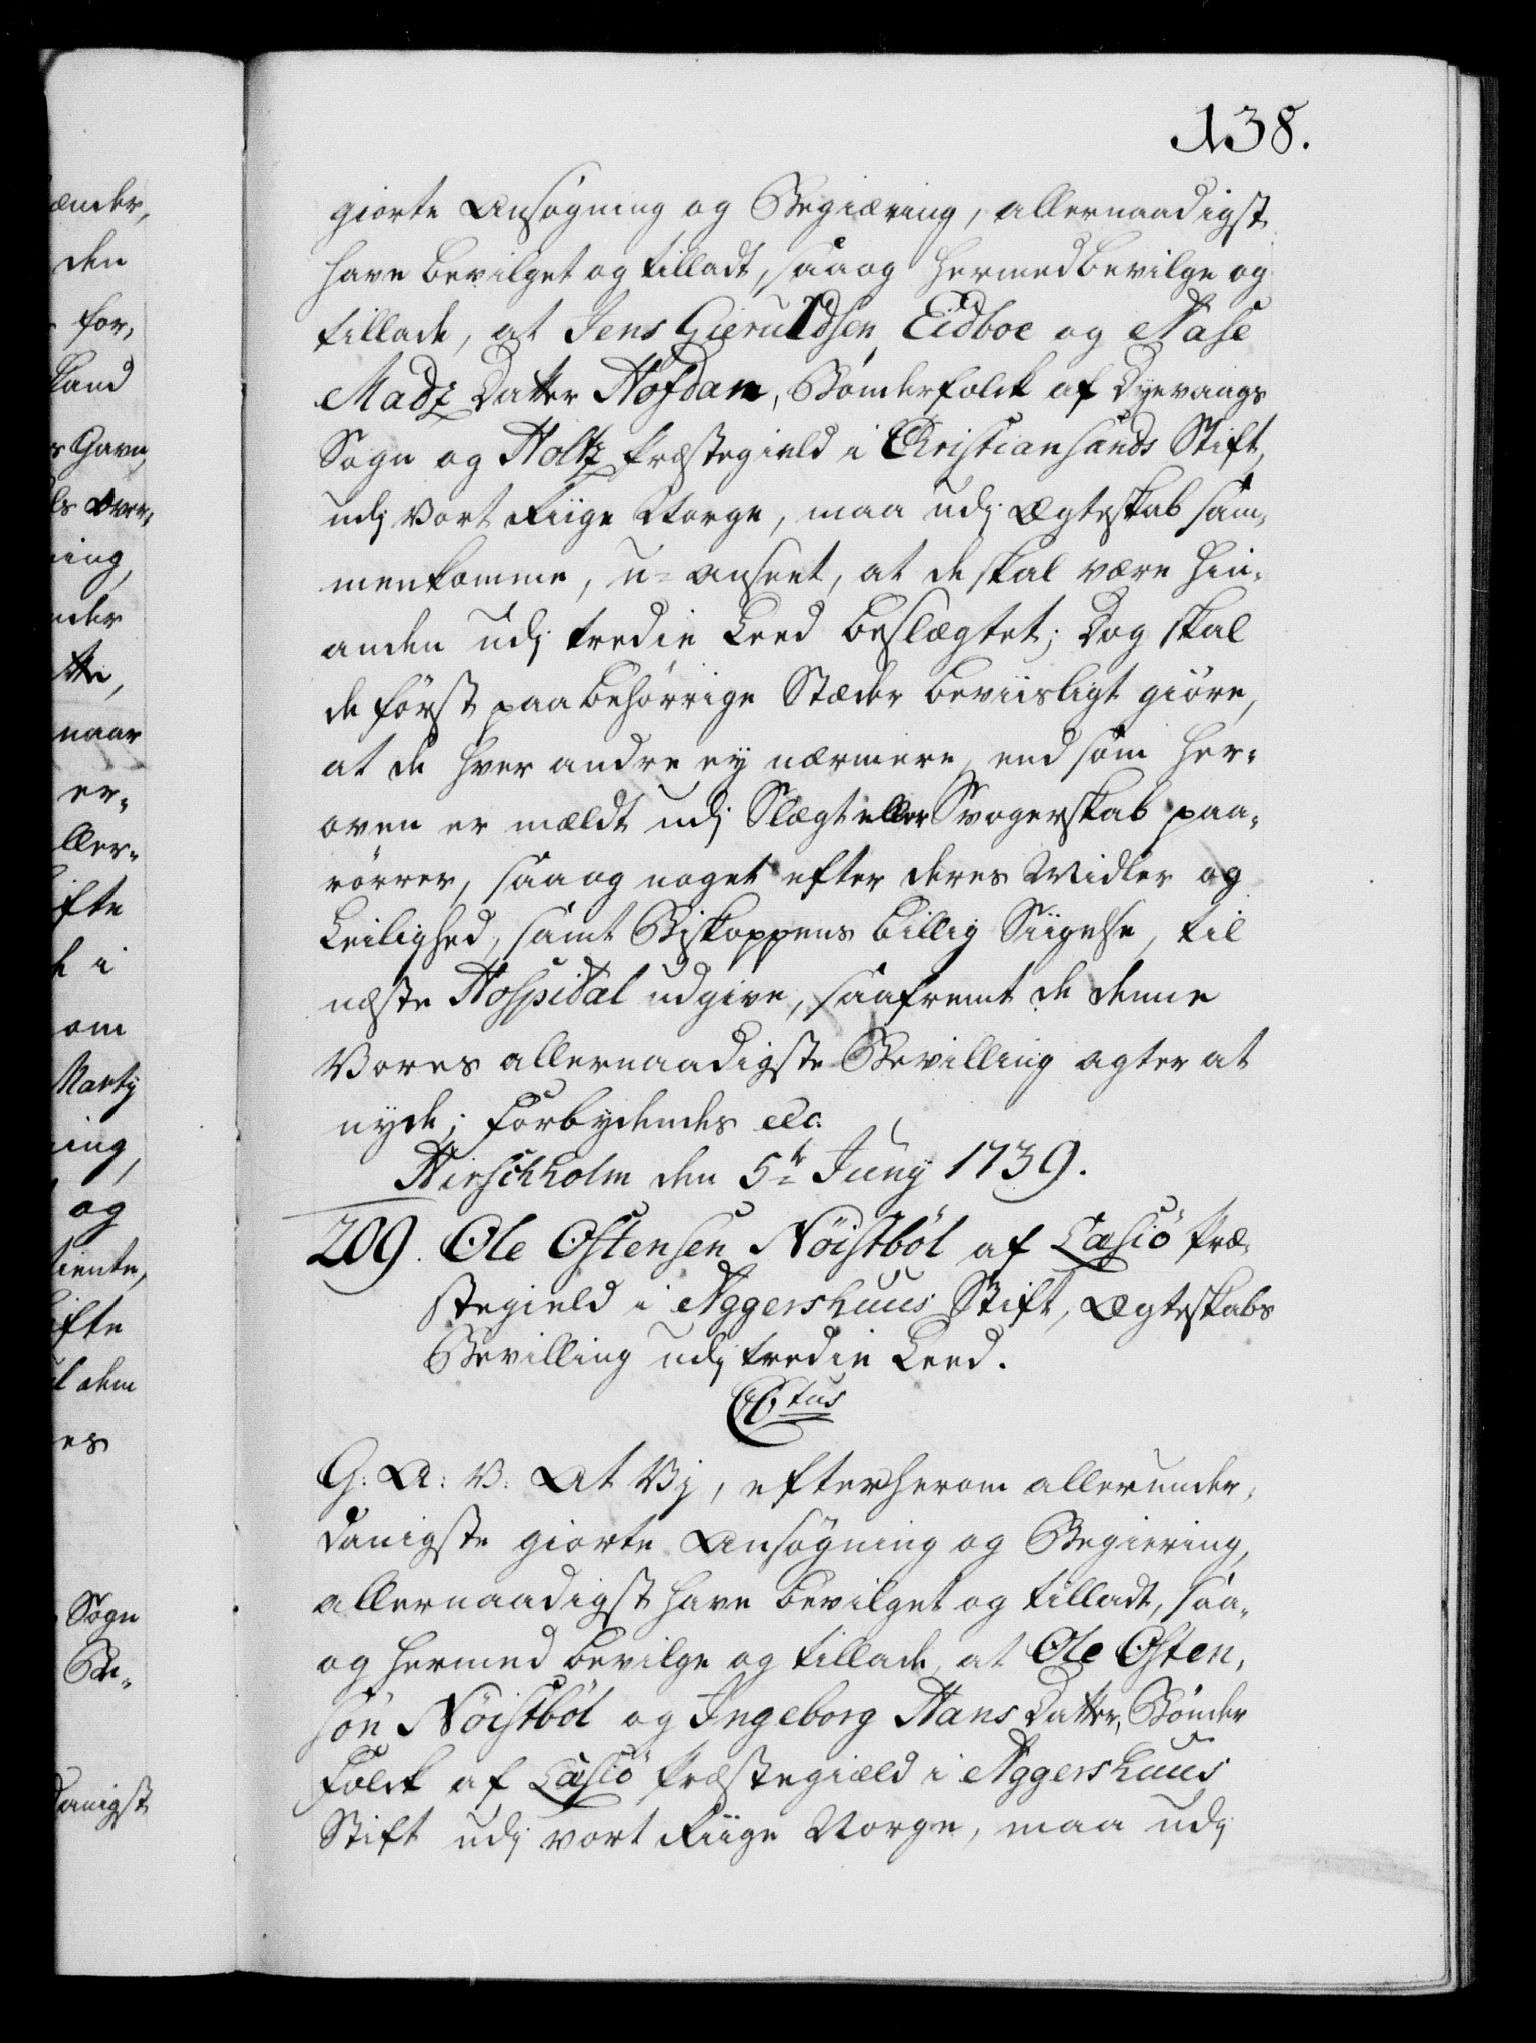 138.
giorte Ansøgning og Begiæring, allernaadigst
have bevilget og tilladt, saa og hermed bevilge og
tillade, at Jens Gieruldsen Eidboe og Aase
Madz Datter Hofdan, Bønderfolck af Dyevaags
Sogn og Holtz Præstegield i Christiansands Stift,
udj Vort Riige Norge, maa udj Ægteskab sam-
menkomme, u-anseet, at de skal være hin-
anden udj tredie Leed beslægtet; Dog skal
de først paa behørrige Stæder beviisligt giøre,
at de hver andre ey nærmere, end som her-
oven er mældt udj Slægt eller Svogerskab paa-
rører, saa og noget efter deres Midler og
Leilighed, samt Biskoppens billig Siigelse, til
næste Hospital udgive, saafremt de denne
Vores allernaadigste Bevilling agter at
nyde; Forbydendes etc.
Hirschholm den 5te Juny 1739.
209. Ole Ostensen Nöistböl af Læsiö Præ-
stegield i Aggershuus Stift, Ægteskabs
Bevilling udj tredie Leed.
C6tus
G: A: V: At Vj, efter herom allerunder-
danigste giorte Ansøgning og Begiering,
allernaadigst have bevilget og tilladt, saa-
og hermed bevilge og tillade, at Ole Osten-
sön Nöistböl og Ingeborg Hans Datter, Bønder
Folck af Læsiö Præstegiæld i Aggershuus
Stift udj vort Riige Norge, maa udj